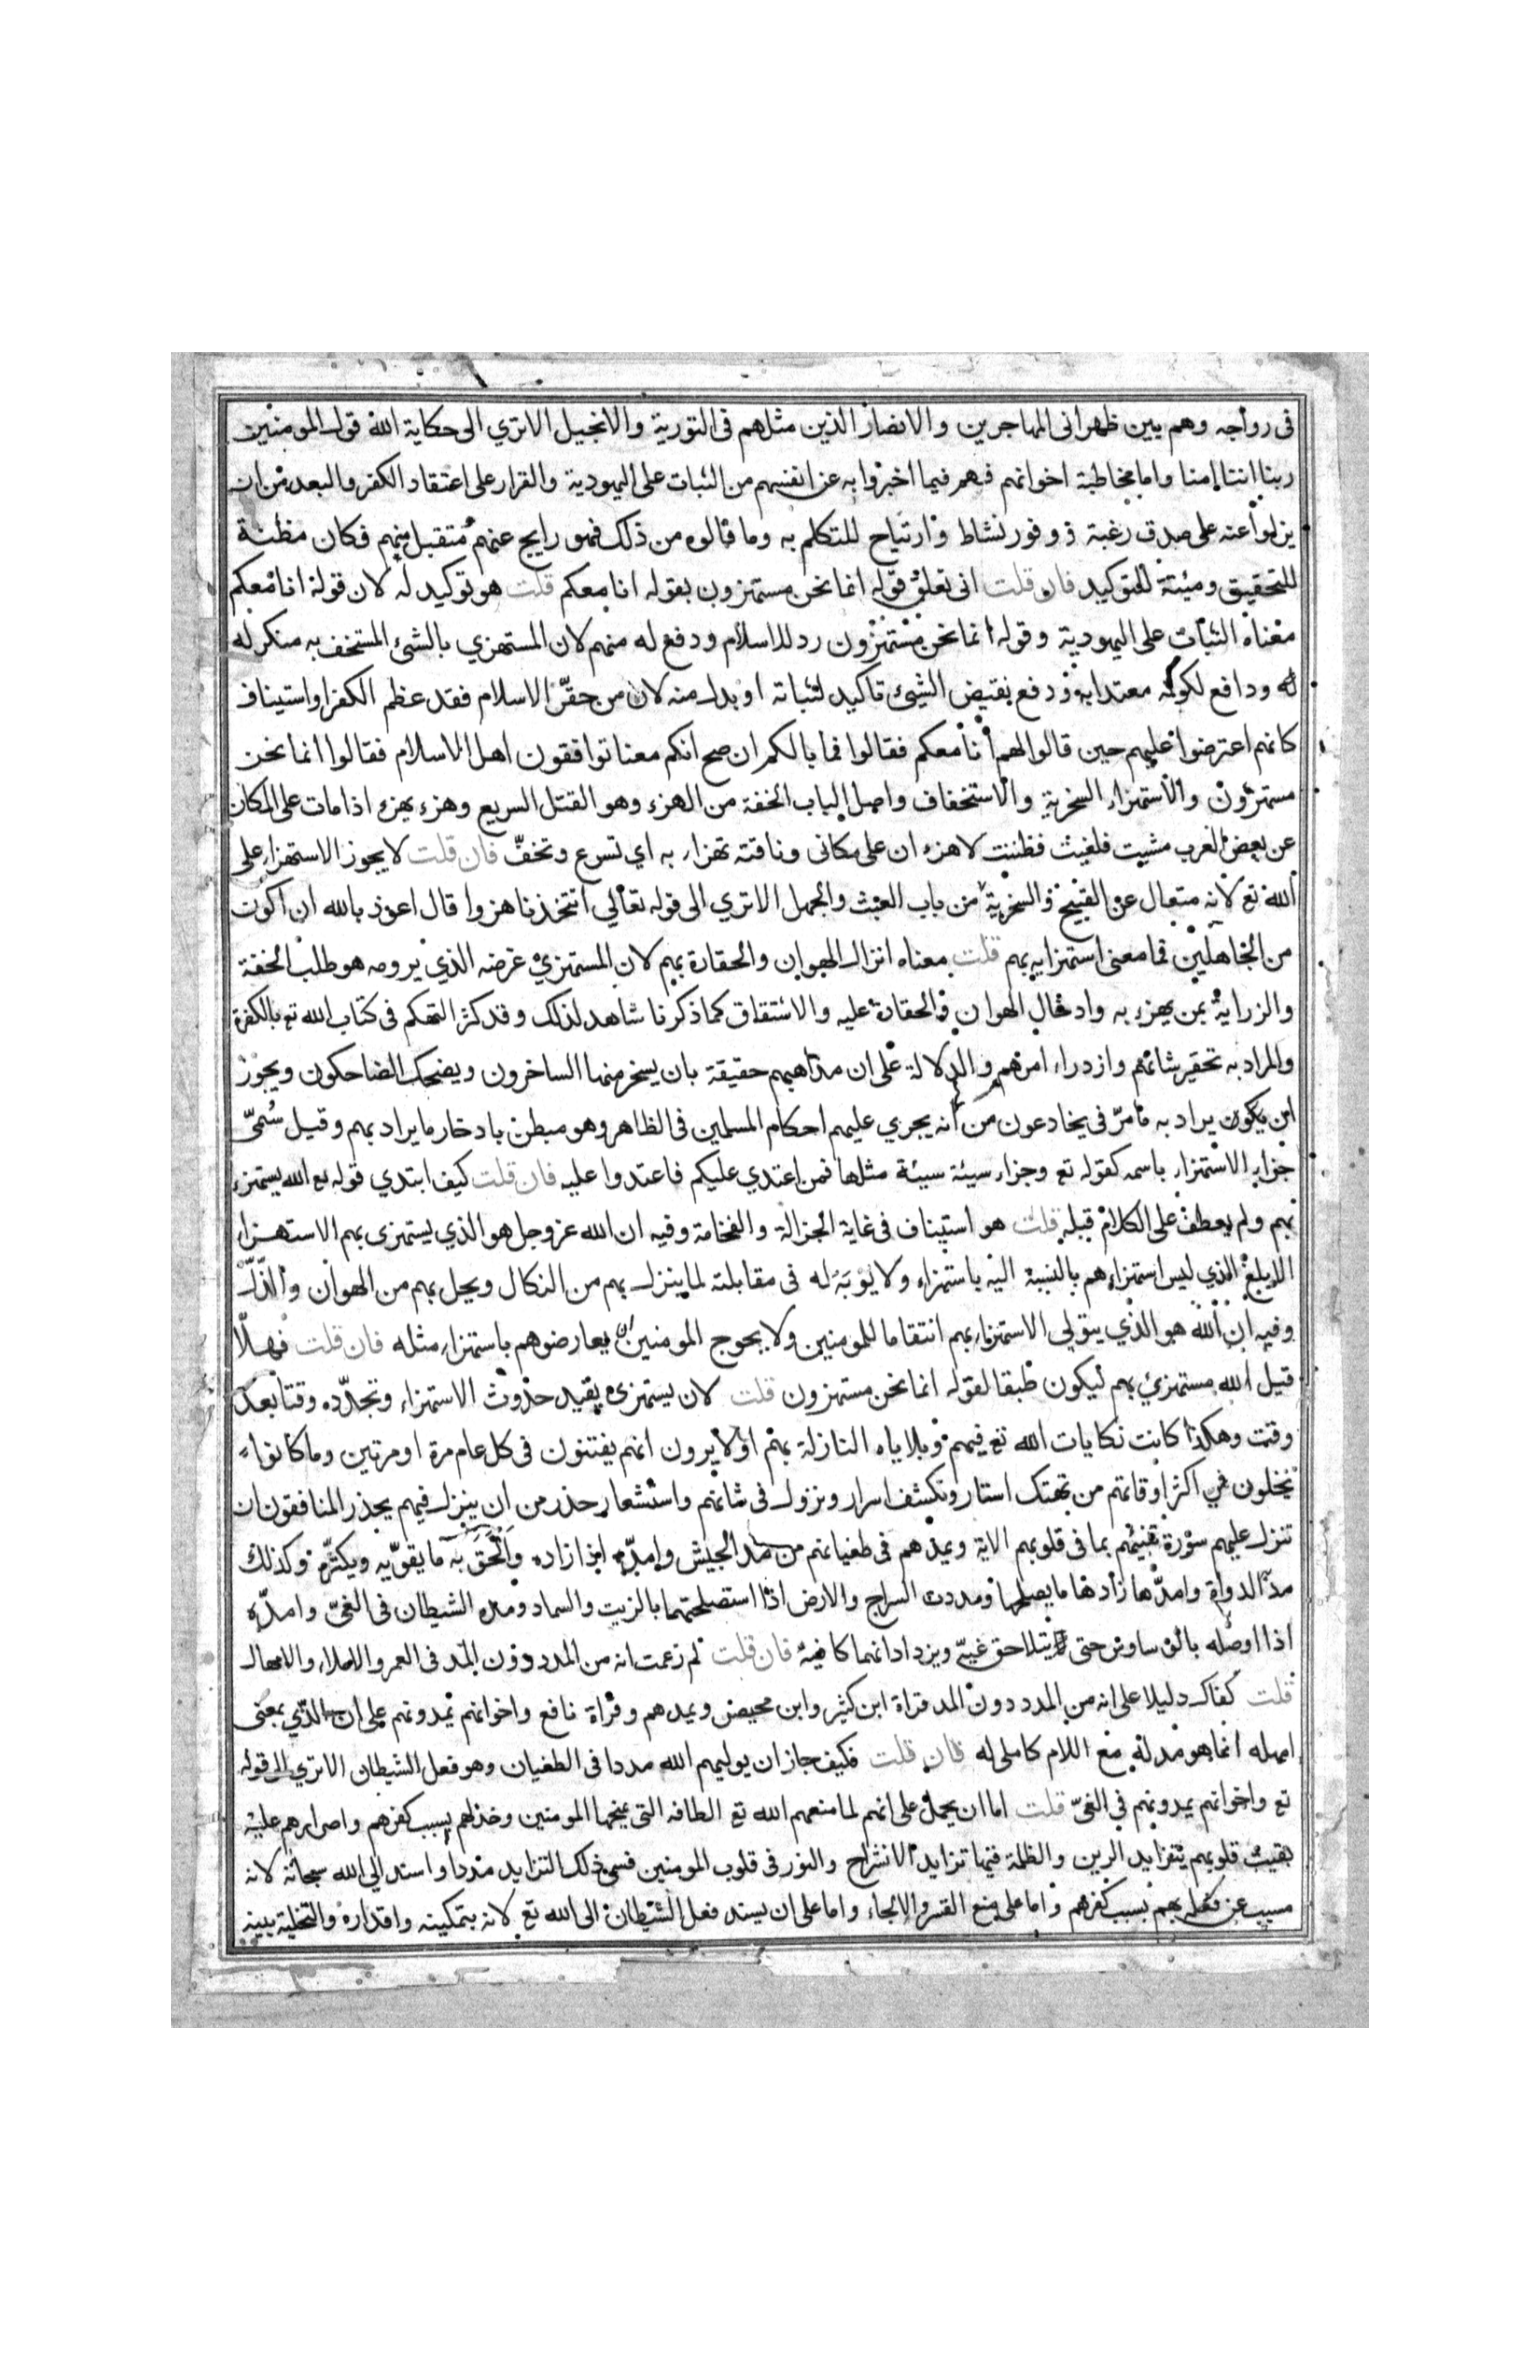 فى رواجه وهم بين ظهرانى المهاجرين والانصار الذين مثلهم فى التورية والانجيل الا ترى الى حكاية الله قول المومنين
ربنا اننا امنا واما مخاطبة اخوانهم فهم فيما اخبروا به عن انفسهم من الثبات على اليهودية والقرار على اعتقاد الكفر والبعد من ان
يزلوا عنه على صدق رغبة ووفور نشاط وارتياح للتكلم به وما قالوه من ذلك فهو رايج عنهم متقبل منهم فكان مظنة
للتحقيق ومئنة للتوكيد فان قلت انى تعلق قوله انما نحن مستهزون بقوله انا معكم قلت هو توكيد له لان قولة انا معكم
معناه الثبات على اليهودية وقوله انما نحن مستهزؤن رد للاسلام ودفع له منهم لان المستهزي بالشئ المستخف به منكر له
له ودافع لكونه معتدا به ودفع نقيض الشيئ تاكيد لثباته او بدل منه لان من حقّر الاسلام فقد عظم الكفر او استيناف
كانهم اعترضوا عليهم حين قالوا لهم انا معكم فقالوا فما بالكم ان صح انكم معنا توافقون اهل الاسلام فقالوا انما نحن
مستهزؤن والاستهزاء السخرية والاستخفاف واصل الباب الخفة من الهزء وهو القتل السريع وهزء يهزء اذا مات على المكان
عن بعض العرب مشيت فلغبت فظننت لاهزء ان على مكانى وناقته تهزاء به اي تسرع وتخفّ فان قلت لا يجوز الاستهزاء على
الله تع لانه متعال عن القبيح والسخرية من باب العبث والجهل الا تري الى قوله تعالى اتتخذنا هزوا قال اعوذ بالله ان اكون
من الجاهلين فما معنى استهزايه بهم قلت معناه انزال الهوان والحقارة بهم لان المستهزئ غرضه الذي يرومه هو طلب الخفة
والزراية بمن يهزء به وادخال الهوان والحقارة عليه والاشتقاق كما ذكرنا شاهد لذلك وقد كثر التهكم فى كتاب الله تع بالكفرة
والمراد به تحقير شانهم وازدراء امرهم والدلالة على ان مذاهبهم حقيقة بان يسخر منها الساخرون ويضحك الضاحكون ويجوز
ان يكون يراد به ما مرّ فى يخادعون من أنه يجري عليهم احكام المسلمين فى الظاهر وهو مبطن بادخار ما يراد بهم وقيل سُمىّ
جزاء الاستهزاء باسمه كقوله تع وجزاء سيئة سيئة مثلها فمن اعتدي عليكم فاعتدوا عليه فان قلت كيف ابتدي قوله تع الله يستهزء
بهم ولم يعطف على الكلام قبله قلت هو استيناف فى غاية الجزالة والفخامة وفيه ان الله عز وجل هو الذي يستهزى بهم الاستهزاء
الابلغ الذي ليس استهزاءهم بالنسبة اليه باستهزاء ولا يؤبَهُ له فى مقابلته لما ينزل بهم من النكال ويحل بهم من الهوان والذّلّ
وفيه ان الله هو الذي يتولى الاستهزاء بهم انتقاما للمومنين ولا يحوج المومنين ان يعارضوهم باستهزاء مثله فان قلت فهلّا
قيل الله مستهزئ بهم ليكون طبقا لقوله انما نحن مستهزون قلت لان يستهزئ يفيد حدوث الاستهزاء وتجدّده وقتا بعد
وقت وهكذا كانت نكايات الله تع فيهم وبلاياه النازلة بهم اولا يرون انهم يفتنون فى كل عام مرة او مرتين وما كانوا
يخلون في اكثر اوقاتهم من تهتك استار وتكشف اسرار ونزول فى شانهم واستشعار حذر من ان ينزل فيهم يحذر المنافقون ان
تنزل عليهم سورة تنبئهم بما فى قلوبهم الاية ويمدهم فى طغيانهم من مد الجيش وامدّه اذا زاده والْحَقَ به ما يقوّيه ويكثّره وكذلك
مدّ الدواة وامدّها زادها ما يصلحها ومددت السراج والارض اذا استصلحتهما بالزيت والسماد ومده الشيطان فى الغىّ وامدّه
اذا اوصله بالوساوس حتى يتلاحق غيّه ويزداد انهماكا فيه فان قلت لم زعمت انه من المدد دون المد فى العمر والاملاء والامهال
قلت كفاك دليلا على انه من المدد دون المد قراة ابن كثير وابن محيصن ويمدهم وقراة نافع واخوانهم يمدونهم على ان الذي بمعنى
امهله انما هو مد له مع اللام كاملى له فان قلت فكيف جاز ان يوليهم الله مددا فى الطغيان وهو فعل الشيطان الا تري الى قوله
تع واخوانهم يمدونهم في الغىّ قلت اما ان يحمل على انهم لما منعهم الله تع الطافه التى يمنحها المومنين وخذلهم بسبب كفرهم واصرارهم عليه
بقيت قلوبهم يتزايد الرين والظلمة فيها تزايد الانشراح والنور فى قلوب المومنين فسمى ذلك التزايد مددا واسند الى الله سبحانه لانه
مسبب عن فعله بهم بسبب كفرهم واما على منع القسر والالجاء واما على ان يسند فعل الشيطان الى الله تع لانه بتمكينه واقداره والتخلية بينه